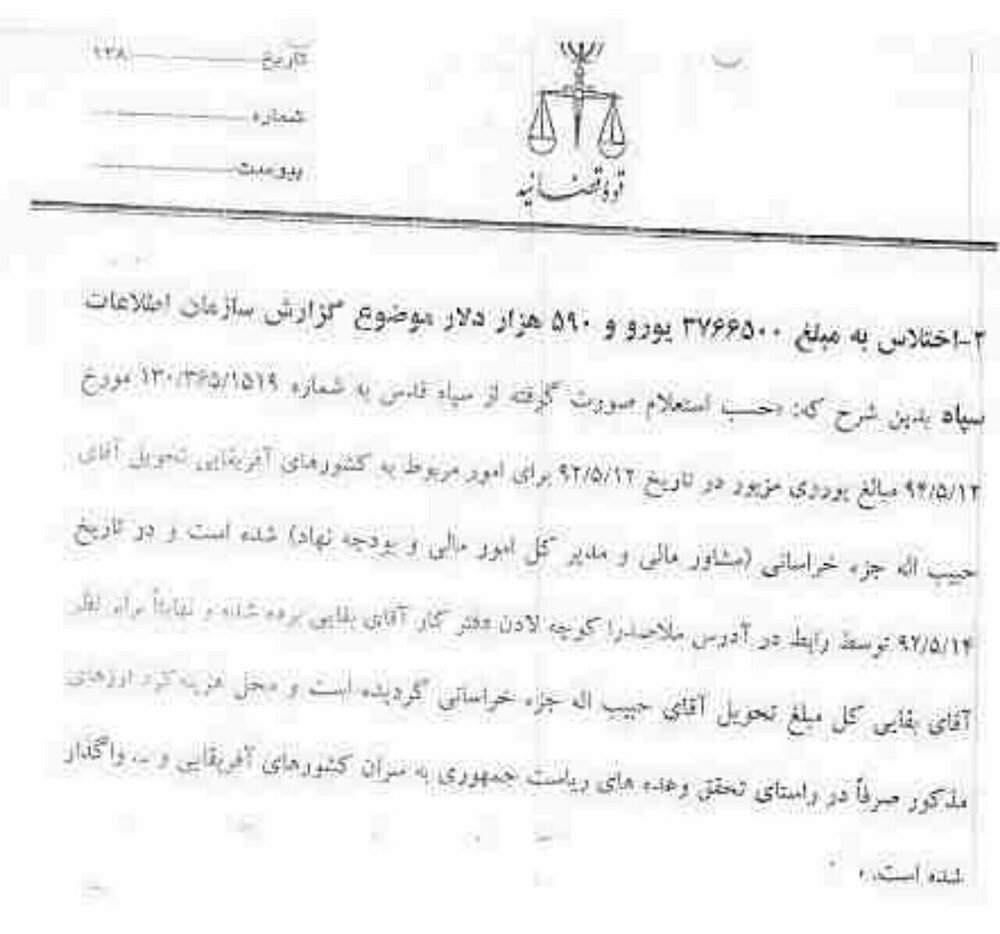 تاریخ ۱۳۸
شماره
پیوست
قوه قضائیه
۲-اختلاس به مبلغ ۳۷۶۶۵۰۰ یورو و ۵۹۰ هزار دلار موضوع گزارش سازمان اطلاعات
سپاه بدین شرح که: «حسب استعلام صورت گرفته از سپاه قدس به شماره ۱۳۰/۳۶۵/۱۵۱۹ مورخ
۹۴/۵/۱۲ مبالغ یوروی مزبور در تاریخ ۹۲/۵/۱۲ برای امور مربوط به کشورهای آفریقایی تحویل آقای
حبیب اله جزء خراسانی (مشاور مالی و مدیر کل امور مالی و بودجه نهاد) شده است و در تاریخ
۹۲/۵/۱۴ توسط رابط در آدرس ملاصدرا کوچه لادن دفتر کار آقای بقایی برده شده و نهایتاً برابر نظر
آقای بقایی کل مبلغ تحویل آقای حبیب اله جزء خراسانی گردیده است و محل هزینه کرد ارزهای
مذکور صرفاً در راستای تحقق وعده های ریاست جمهوری به سران کشورهای آفریقایی و ... واگذار
شده است. »